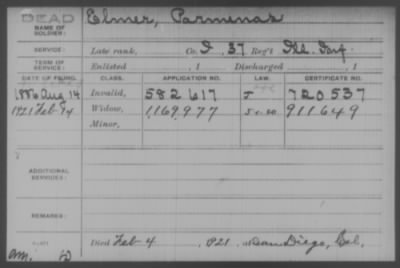 DEAD
NAME OF SOLDIER: Elmer, Parmenas
SERVICE: Late rank, Co. I, 37 Reg't Ill. Inf.
TERM OF SERVICE: Enlisted , 1 Discharged , 1
DATE OF FILING. CLASS. APPLICATION NO. LAW. CERTIFICATE NO.
1886 Aug 14 Invalid, 582617 J 720537
1921 Feb 14 Widow, 1,169,977 911649
Minor,
ADDITIONAL SERVICES:
REMARKS:
Died Feb 4, 1921, at San Diego, Cal,